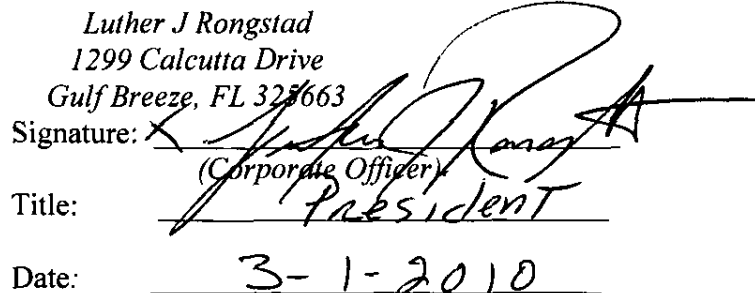 Luther J Rongstad
1299 Calcutta Drive
Gulf Breeze, FL 325663
Signature: X Luther J Rongstad
(Corporate Officer)
Title: President
Date: 3-1-2010